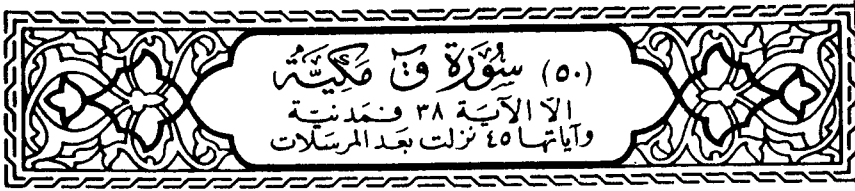 (٥٠) سُورَة قٓ مَكِيَّة
الا الآية ٣٨ فمدنيّة
وآياتها ٤٥ نزلت بعد المرسَلات